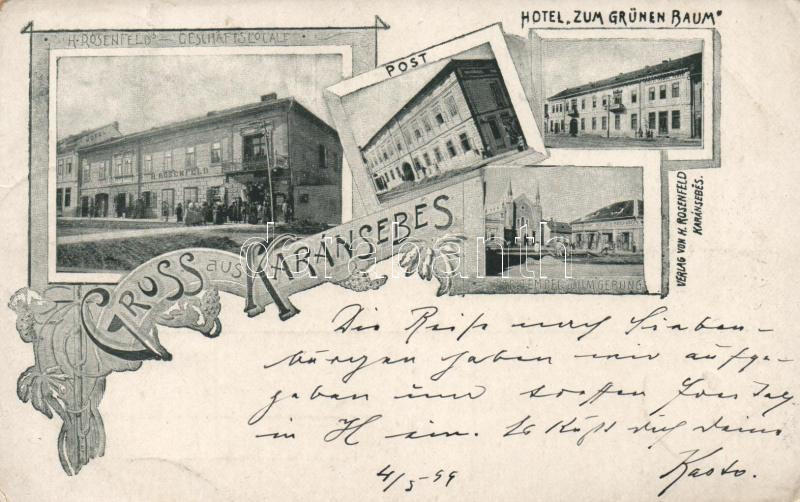 HOTEL „ZUM GRÜNEN BAUM"
H. ROSENFELD'S — GESCHÄFTSLOCALE
POST
H. ROSENFELD
GRUSS aus KARÁNSEBES
TEMPEL UMGEBUNG
VERLAG VON H. ROSENFELD
KARÁNSEBES.
darabanth
Die Reise nach Sieben-
bürgen haben wir aufge-
geben und treffen Freitag
in H ein. Es küßt dich deine
4/5 - 99